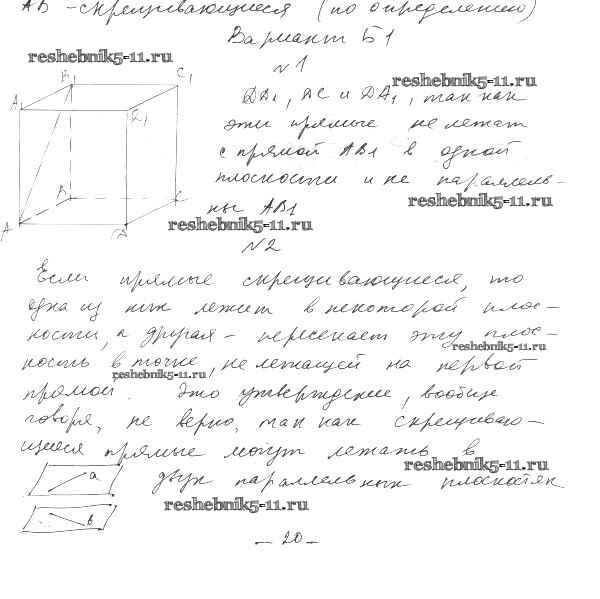 АВ - скрещивающиеся (по определению)
Вариант Б1
reshebnik5-11.ru
№1
reshebnik5-11.ru
B1
C1
A1
D1
DD1, DC и DA1, так как
эти прямые не лежат
с прямой AB1 в одной
B
плоскости и не параллель-
C
reshebnik5-11.ru
ны AB1
A
D
reshebnik5-11.ru
№2
Если прямые скрещивающиеся, то
одна из них лежит в некоторой плос-
кости, а другая - пересекает эту плос-
reshebnik5-11.ru
кость в точке, не лежащей на первой
reshebnik5-11.ru
прямой. Это утверждение, вообще
говоря, не верно, так как скрещиваю-
щиеся прямые могут лежать в
reshebnik5-11.ru
a
двух параллельных плоскостях
reshebnik5-11.ru
b
- 20 -